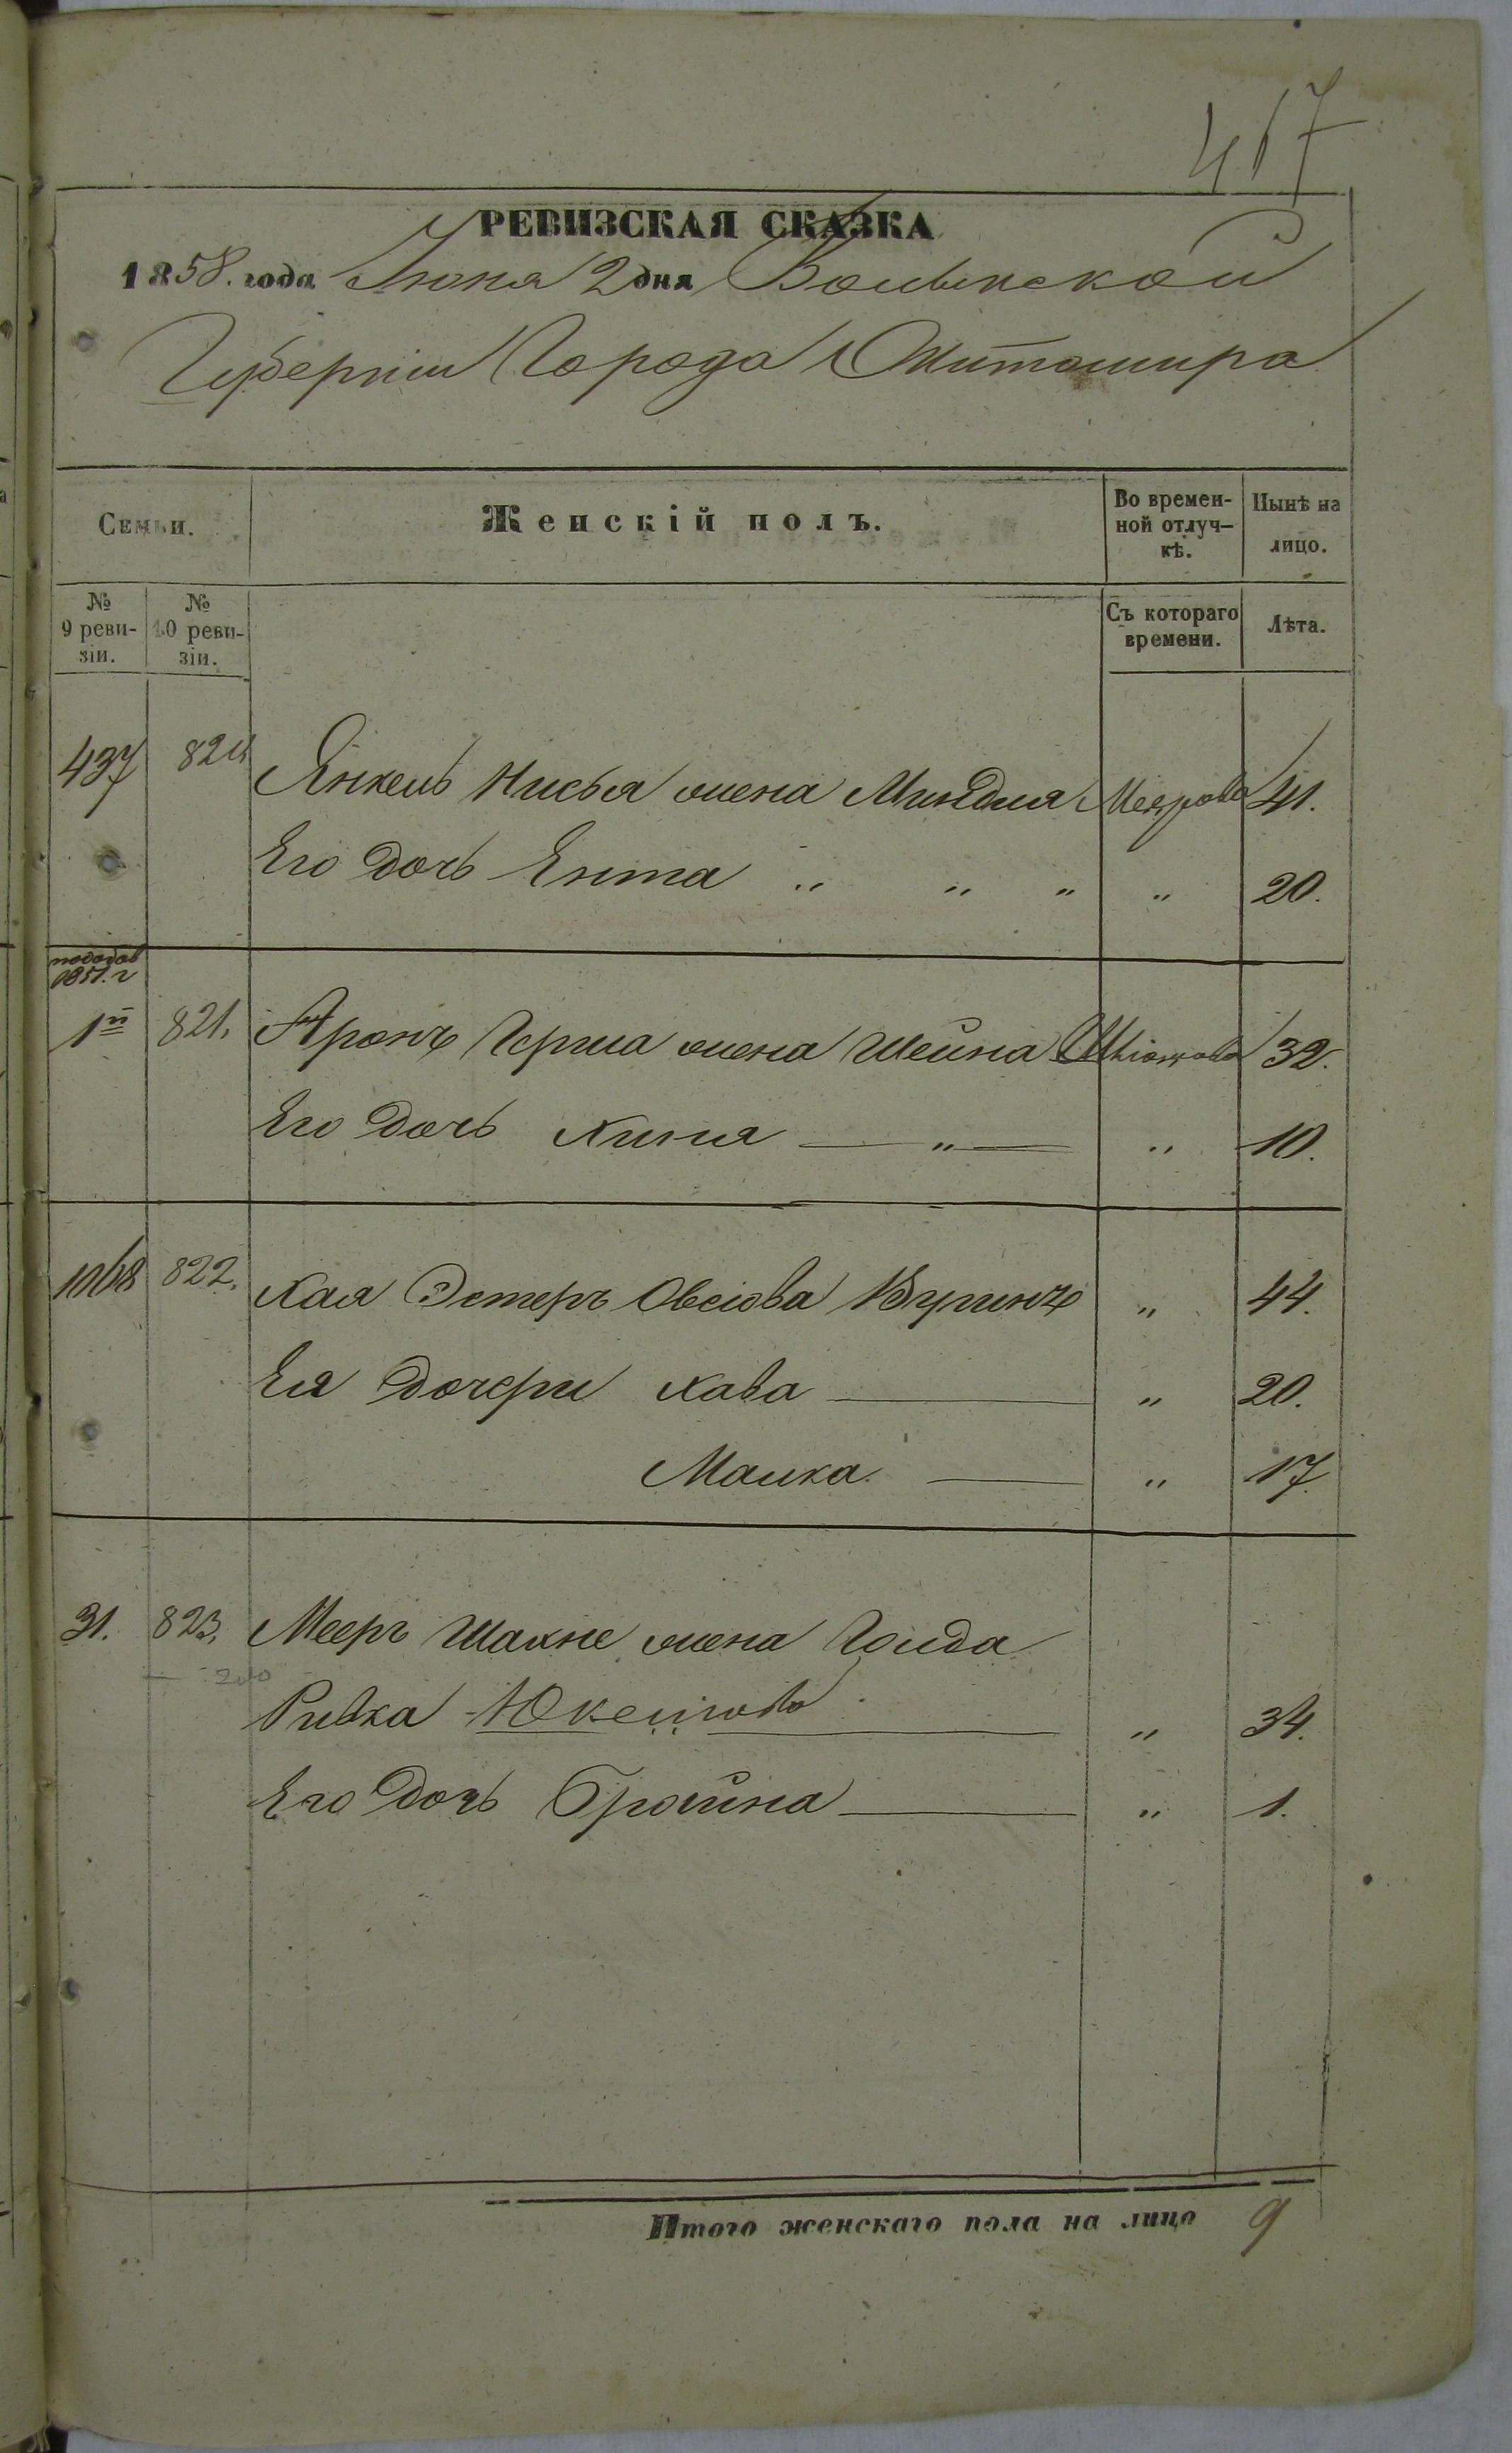 417
РЕВИЗСКАЯ СКАЗКА
1858. года Іюня 2 дня Волынской
Губерніи Города Житомира
Семьи.
Женскій полъ.
Во времен-
ной отлуч-
кѣ.
Нынѣ на
лицо.
№
9 реви-
зіи.
№
10 реви-
зіи.
Съ котораго
времени.
Лѣта.
437 820 Янкель Нисья жена Миндля Меерова 41.
Его дочь Ента „ „ „ „ 20.
1851. г
1й 821. Аронъ Герша жена Шейна 32.
Его дочь Хиня — „ — „ 10.
1068 822. Хая Эстеръ Овсіова „ 44.
Ея дочери Хава — „ 20.
Малка. — „ 17.
31. 823. Мееръ Шахне жена Голда
Ривка — „ 34.
Его дочь Брайна — „ 1.
Итого женскаго пола на лицо 9